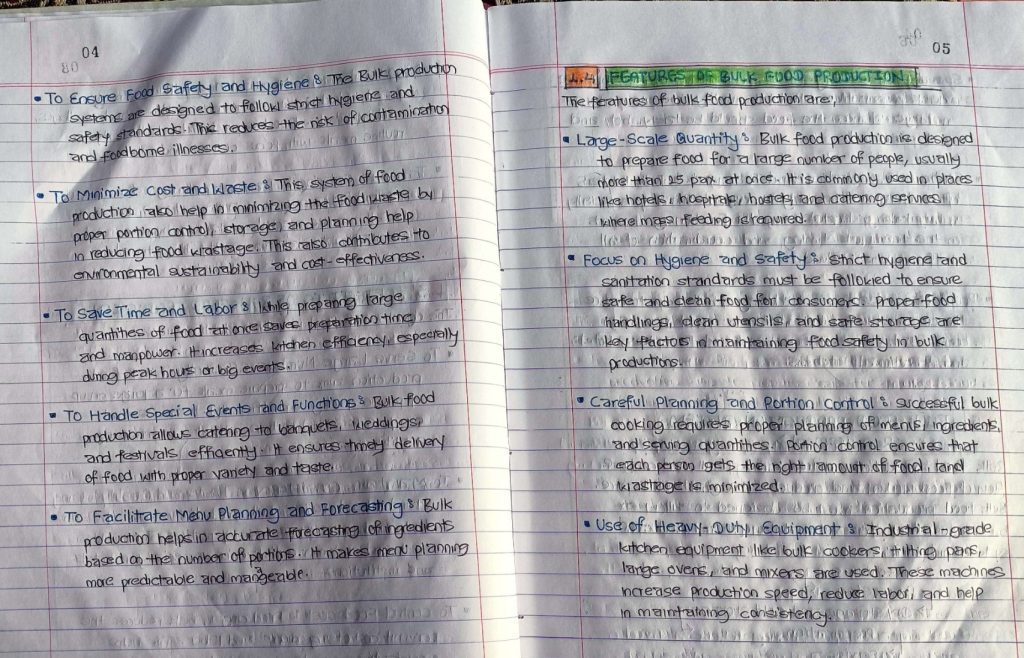 04
• To Ensure Food Safety and Hygiene : The Bulk production
systems are designed to follow strict hygiene and
safety standards. This reduces the risk of contamination
and foodborne illnesses.
• To Minimize Cost and Waste : This system of food
production also help in minimizing the food waste by
proper portion control, storage, and planning help
in reducing food wastage. This also contributes to
environmental sustainability and cost-effectiveness.
• To Save Time and Labor : While preparing large
quantities of food at once saves preparation time
and manpower. It increases kitchen efficiency, especially
during peak hours or big events.
• To Handle Special Events and Functions : Bulk food
production allows catering to banquets, weddings,
and festivals efficiently. It ensures timely delivery
of food with proper variety and taste
• To Facilitate Menu Planning and Forecasting : Bulk
production helps in accurate forecasting of ingredients
based on the number of portions. It makes menu planning
more predictable and manageable.
05
1.4 FEATURES OF BULK FOOD PRODUCTION
The features of bulk food production are,
• Large-Scale Quantity : Bulk food production is designed
to prepare food for a large number of people, usually
more than 25 pax at once. It is commonly used in places
like hotels, hospitals, hostels and catering services
where mass feeding is required.
• Focus on Hygiene and Safety : Strict hygiene and
sanitation standards must be followed to ensure
safe and clean food for consumers. Proper food
handlings, clean utensils, and safe storage are
key factors in maintaining food safety in bulk
productions.
• Careful Planning and Portion Control : Successful bulk
cooking requires proper planning of menus, ingredients,
and serving quantities. Portion control ensures that
each person gets the right amount of food, and
wastage is minimized.
• Use of Heavy-Duty Equipment : Industrial-grade
kitchen equipment like bulk cookers, tilting pans,
large ovens, and mixers are used. These machines
increase production speed, reduce labor, and help
in maintaining consistency.